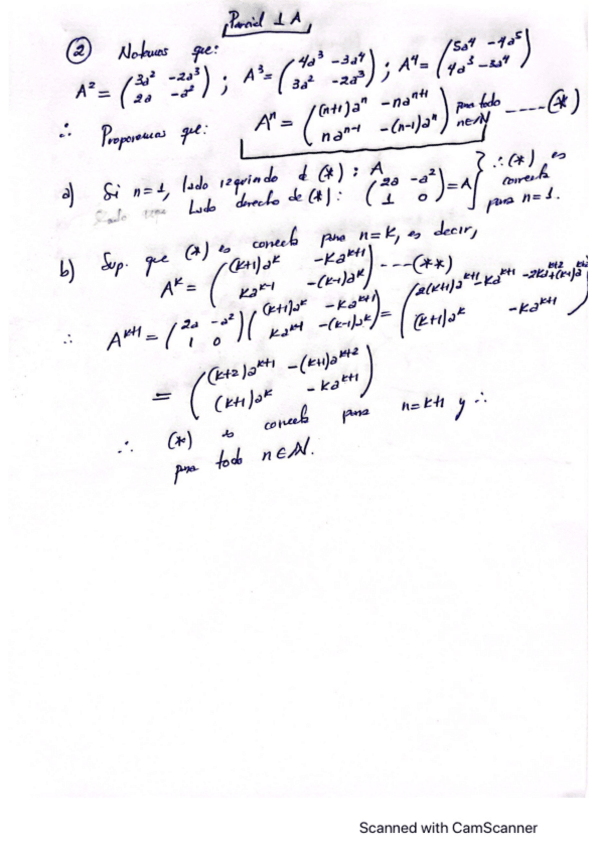 Parcial 1 A
② Notemos que:
A² = (3a² -2a³; 2a -a²) ; A³ = (4a³ -3a⁴; 3a² -2a³) ; A⁴ = (5a⁴ -4a⁵; 4a³ -3a⁴)
∴ Proponemos que: Aⁿ = ((n+1)aⁿ -naⁿ⁺¹; naⁿ⁻¹ -(n-1)aⁿ) para todo n∈N ----(*)
a) Si n=1, lado izquierdo d (*) : A
Lado derecho de (*): (2a -a²; 1 0) = A } ∴ (*) es correcta para n=1.
b) Sup. que (*) es correcta para n=k, es decir,
Aᵏ = ((k+1)aᵏ -kaᵏ⁺¹; kaᵏ⁻¹ -(k-1)aᵏ) ---(**)
∴ Aᵏ⁺¹ = (2a -a²; 1 0)((k+1)aᵏ -kaᵏ⁺¹; kaᵏ⁻¹ -(k-1)aᵏ) = (2(k+1)aᵏ⁺¹-kaᵏ⁺¹ -2kaᵏ⁺²+(k-1)aᵏ⁺²; (k+1)aᵏ -kaᵏ⁺¹)
= ((k+2)aᵏ⁺¹ -(k+1)aᵏ⁺²; (k+1)aᵏ -kaᵏ⁺¹)
∴ (*) es correcta para n=k+1 y ∴
para todo n∈N.
Scanned with CamScanner